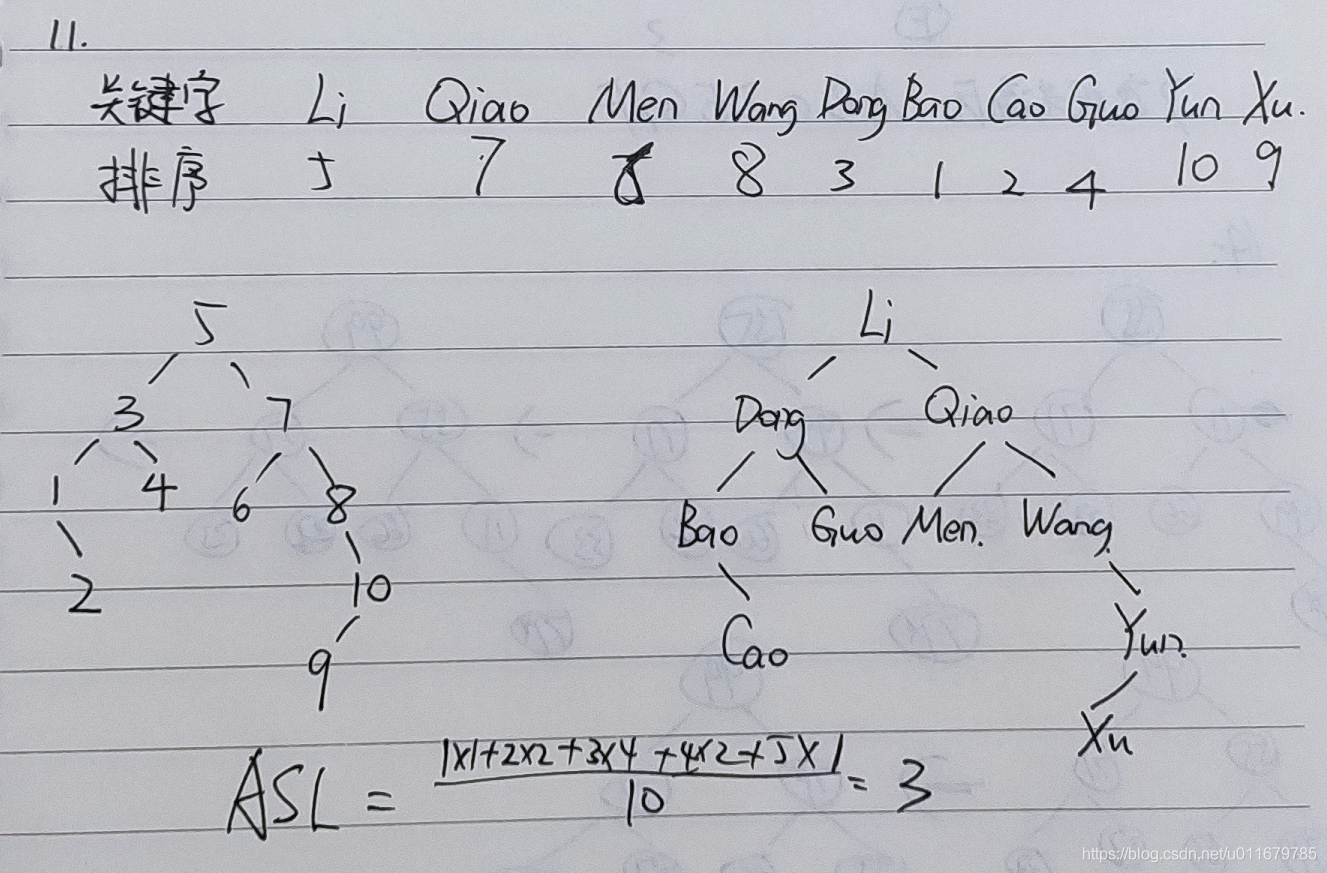 11.
关键字 Li Qiao Men Wang Dong Bao Cao Guo Yun Xu.
排序 5 7 6 8 3 1 2 4 10 9
5 Li
3 7 Dong Qiao
1 4 6 8 Bao Guo Men. Wang
2 10 Cao Yun.
9 Xu
ASL = 1×1+2×2+3×4+4×2+5×1 / 10 = 3
https://blog.csdn.net/u011679785